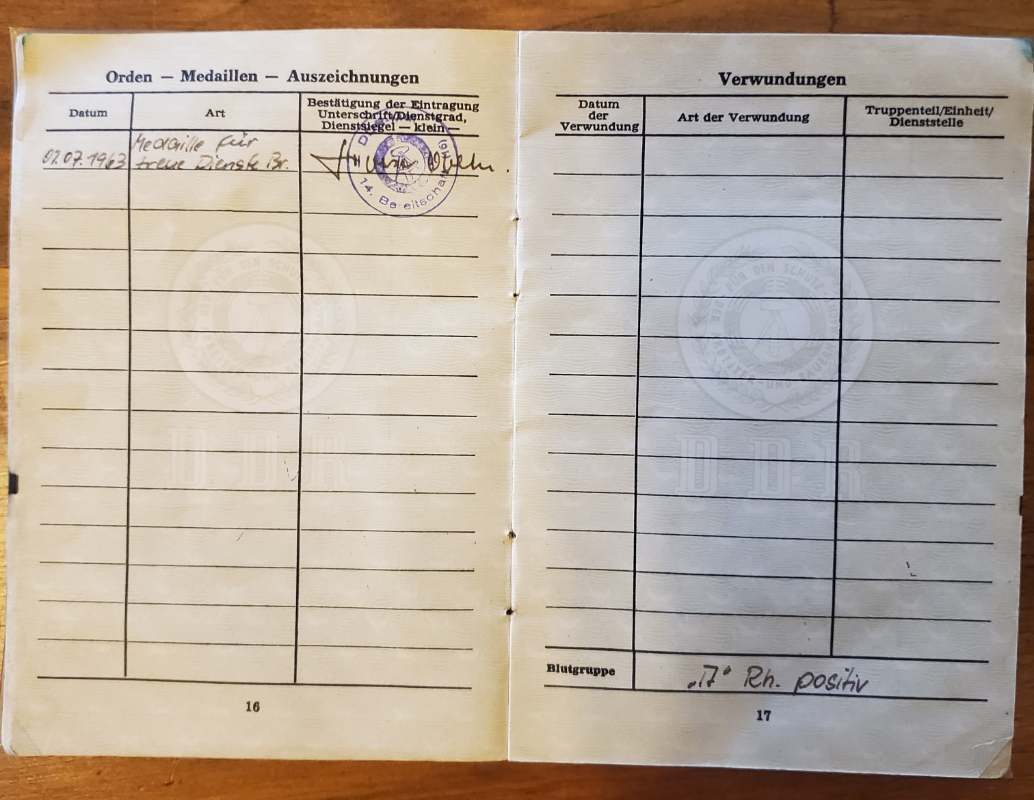 Orden — Medaillen — Auszeichnungen
Datum
Art
Bestätigung der Eintragung
Unterschrift/Dienstgrad,
Dienstsiegel — klein
Medaille für
07.1963 treue Dienste Br.
14. Bereitschaft
DDR
16
Verwundungen
Datum
der
Verwundung
Art der Verwundung
Truppenteil/Einheit/
Dienststelle
DDR
Blutgruppe
Rh. positiv
17